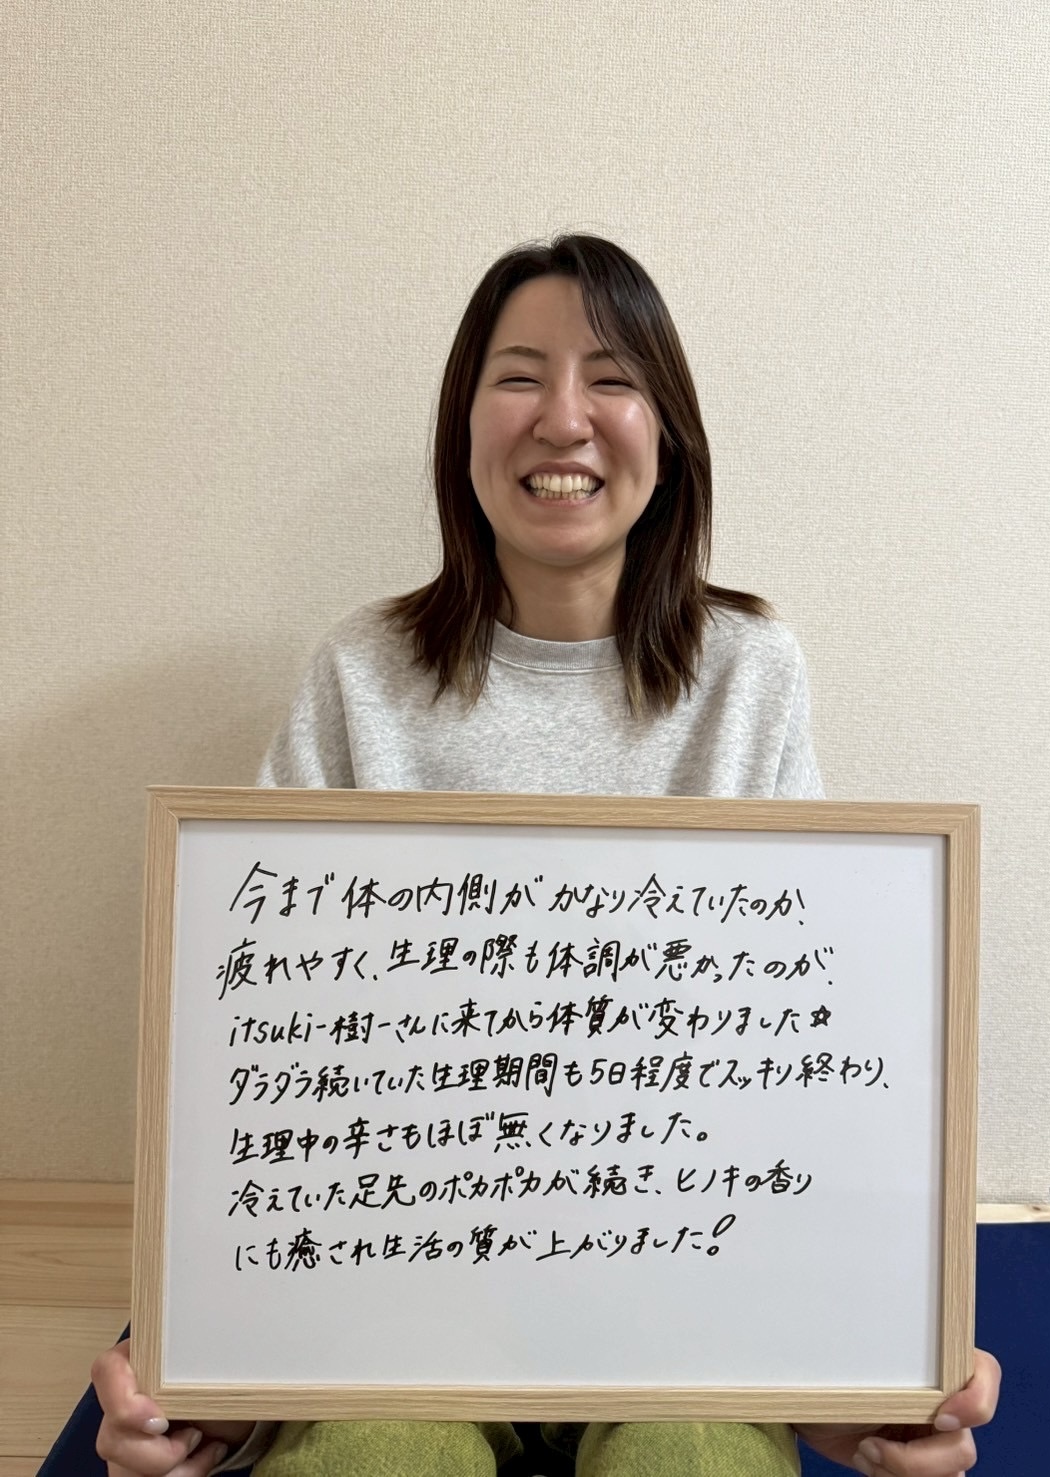 今まで体の内側がかなり冷えていたのか、
疲れやすく、生理の際も体調が悪かったのが、
itsuki-樹-さんに来てから体質が変わりました☆
ダラダラ続いていた生理期間も5日程度でスッキリ終わり、
生理中の辛さもほぼ無くなりました。
冷えていた足先のポカポカが続き、ヒノキの香り
にも癒され生活の質が上がりました!